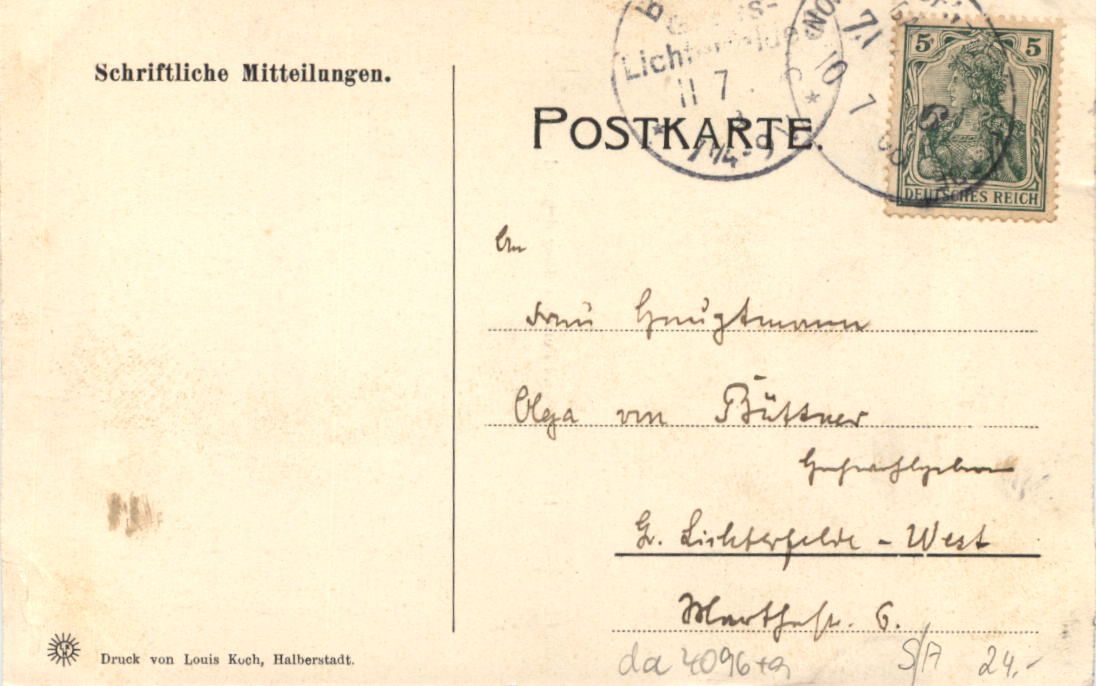 Schriftliche Mitteilungen.
POSTKARTE.
Lichterfelde
11 7
10 7
5 5
DEUTSCHES REICH
An
Frau Hauptmann
Olga von Büttner
Hochwohlgeboren
G. Lichterfelde - West
Marthastr. 6.
Druck von Louis Koch, Halberstadt.
da 4096+a S/A 24.-